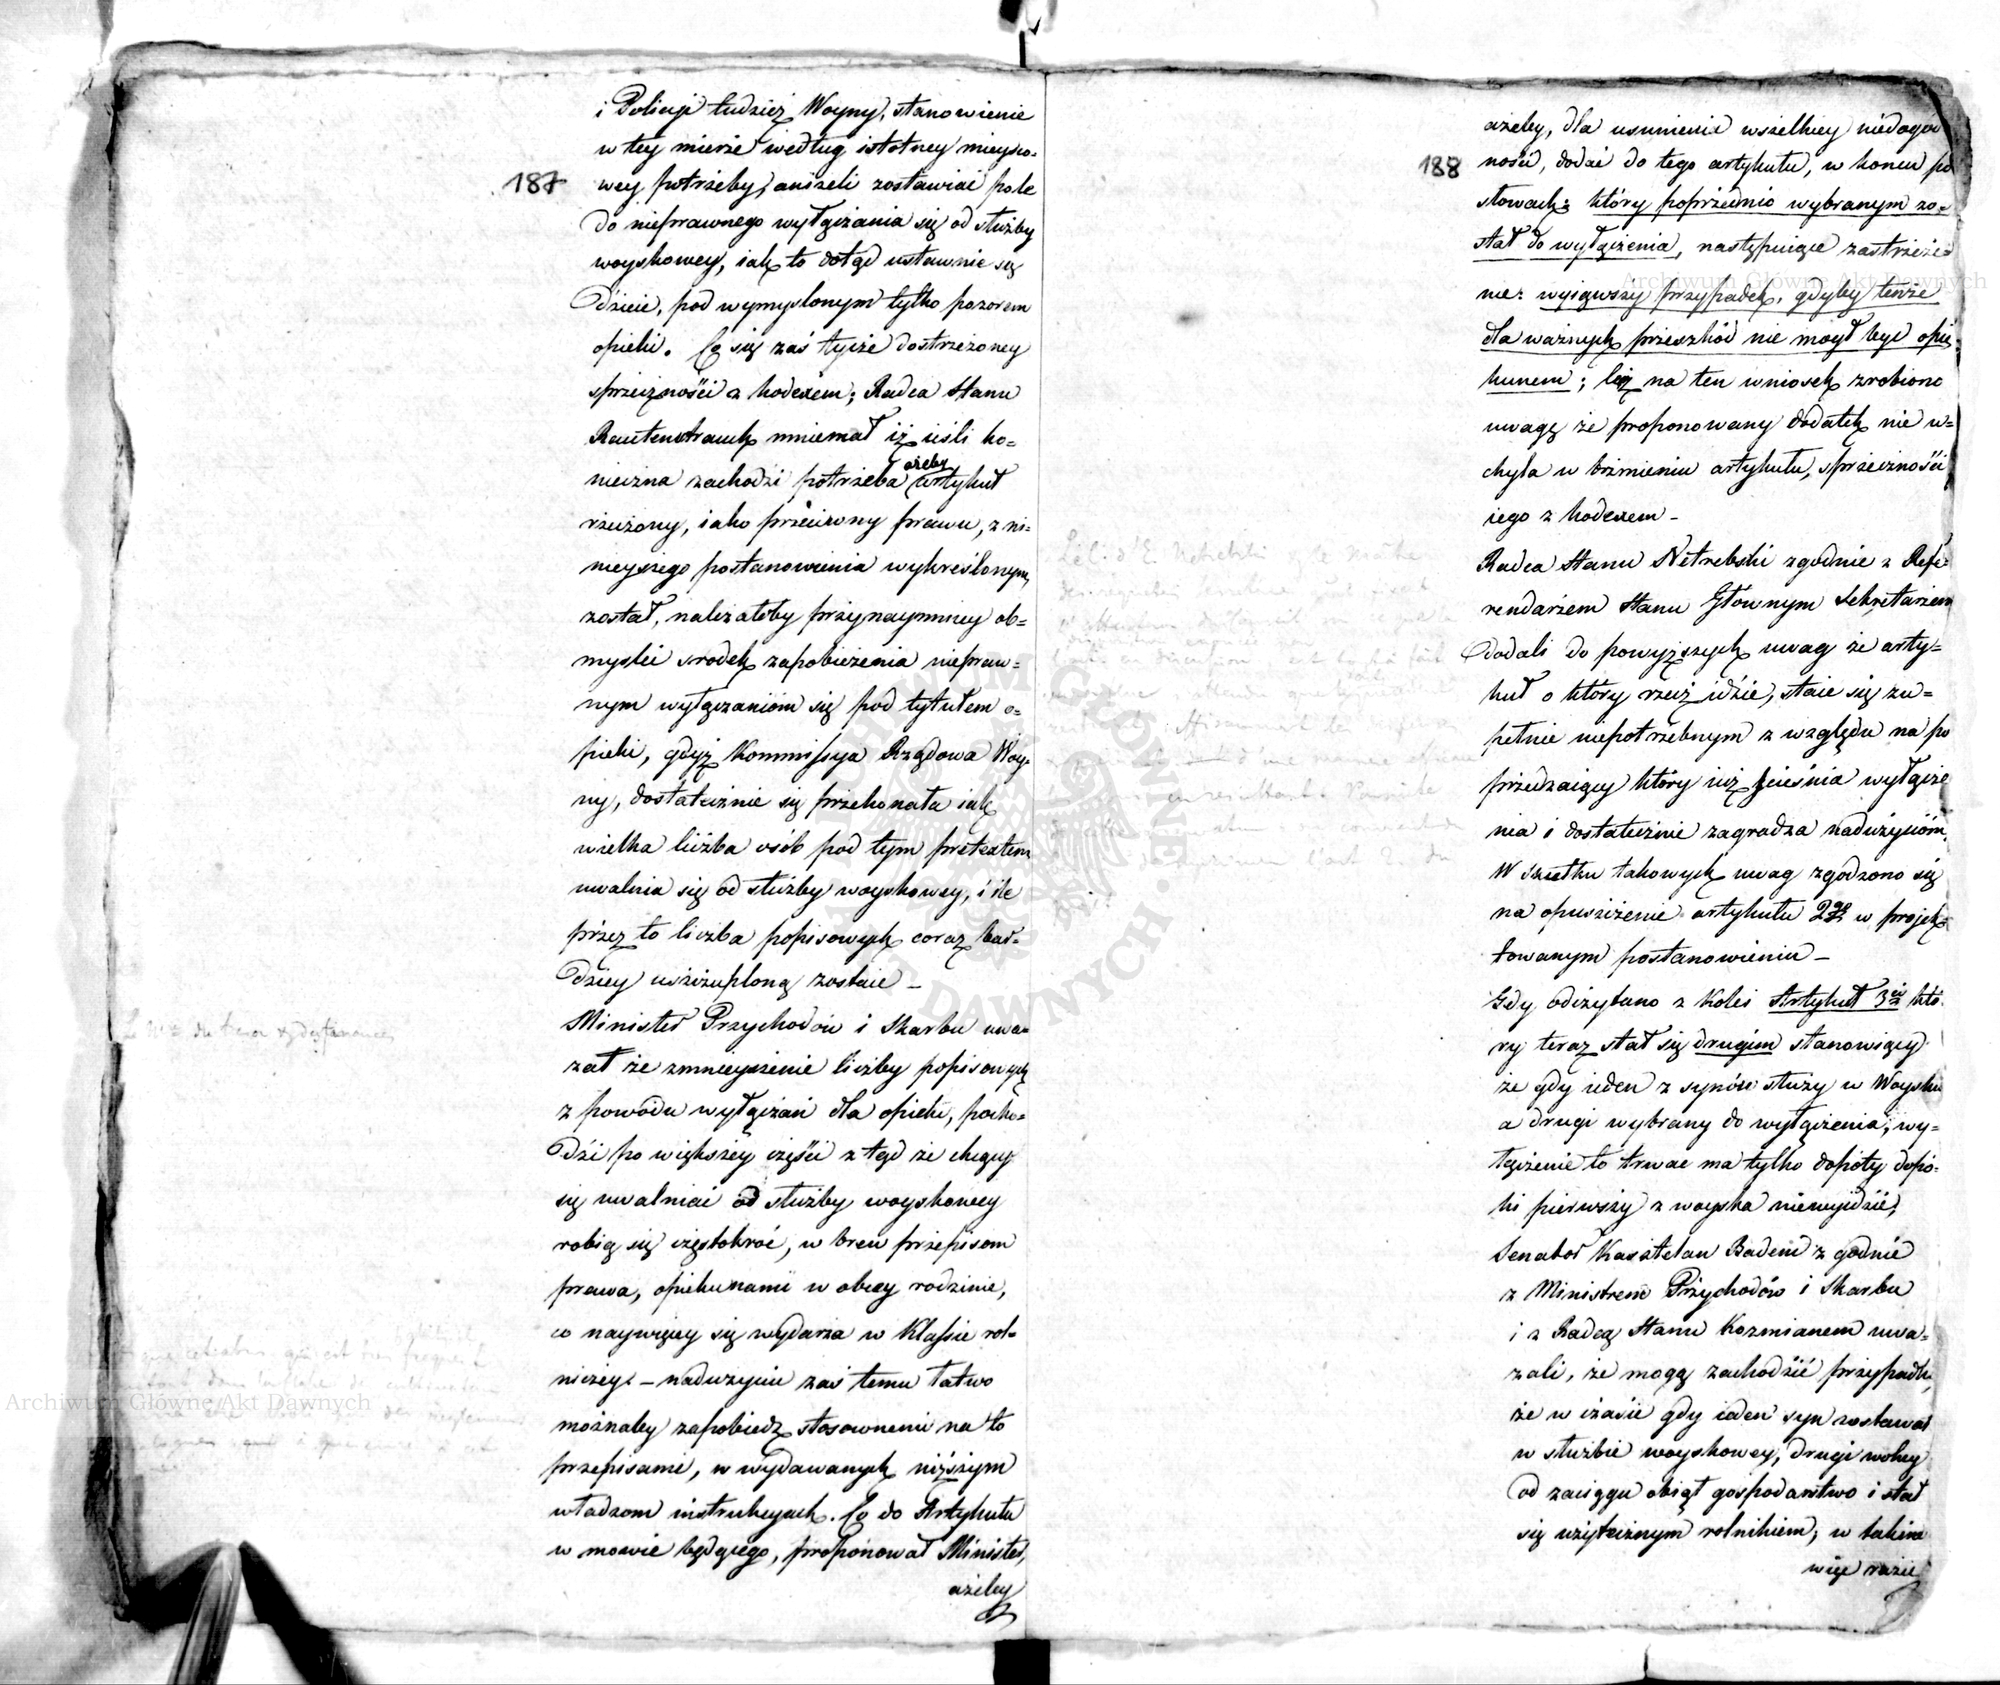 187
i Policyi tudzież Woyny, stanowienie
w tey mierze według istotney mieysco-
wey potrzeby, aniżeli zostawiać pole
do nieprawnego wyłączania się od służby
woyskowey, iak to dotąd ustawnie się
dzieie, pod wymyslonym tylko pozorem
opieki. Co się zaś tycze dostrzeżoney
sprzeczności z kodexem; Radca Stanu
Rautenstrauch mniemał iż ieśli ko-
nieczna zachodzi potrzeba ażeby artykuł
rzeczony, iako przeciwny prawu, z ni-
nieyszego postanowienia wykreślonym
został, należałoby przynaymniey ob-
myslić srodek zapobieżenia niepraw-
nym wyłączaniom się pod tytułem o-
pieki, gdyż Kommissya Rządowa Woy-
ny, dostatecznie się przekonała iak
wielka liczba osób pod tym pretextem
uwalnia się od służby woyskowey, i ile
przez to liczba popisowych coraz bar-
dziey uszczuploną zostaie –
Minister Przychodów i Skarbu uwa-
żał że zmnieyszenie liczby popisowych
z powodu wyłączań dla opieki, pocho-
dzi po większey części z tąd że chcący
się uwalniać od służby woyskowey
robią się częstokroć, w brew przepisom
prawa, opiekunami w obcey rodzinie,
co naywięcey się wydarza w Klassie rol-
niczey. – nadużyciu zaś temu łatwo
możnaby zapobiedz stosownemi na to
przepisami, w wydawanych niższym
władzom instrukcyach. Co do Artykułu
w mowie będącego, proponował Minister,
ażeby
188
ażeby, dla usunienia wszelkiey niedogod
ności, dodać do tego artykułu, w koncu po
słowach: który poprzednio wybranym zo-
stał do wyłączenia, następuiące zastrzeże
nie: wyiąwszy przypadek, gdyby tenże
dla ważnych przeszkód nie mógł być opie
kunem; lecz na ten wniosek zrobiono
uwagę że proponowany dodatek nie u-
chyla w brzmieniu artykułu, sprzeczności
iego z kodexem –
Radca Stanu Netrebski zgodnie z Refe-
rendarzem Stanu Głównym Sekretarzem
dodali do powyższych uwag że arty-
kuł o który rzecz idzie, staie się zu-
pełnie niepotrzebnym z względu na po
przedzaiący który iuż ścieśnia wyłącze
nia i dostatecznie zagradza nadużyciom.
W skutku takowych uwag zgodzono się
na opuszczenie artykułu 2go w projek-
towanym postanowieniu –
Gdy odczytano z Kolei Artykuł 3ci któ-
ry teraz stał się drugim stanowiący
że gdy ieden z synów służy w Woysku
a drugi wybrany do wyłączenia, wy-
łączenie to trwać ma tylko dopóty dopó-
ki pierwszy z woyska niewyidzie,
Senator Kasztelan Badeni zgodnie
z Ministrem Przychodów i Skarbu
i z Radcą Stanu Kozmianem uwa-
żali, że mogą zachodzić przypadki,
że w czasie gdy ieden syn zostawał
w służbie woyskowey, drugi wolny
od zaciągu obiął gospodarstwo i stał
się użytecznym rolnikiem; w takim
więc razie
Archiwum Główne Akt Dawnych
Archiwum Główne Akt Dawnych